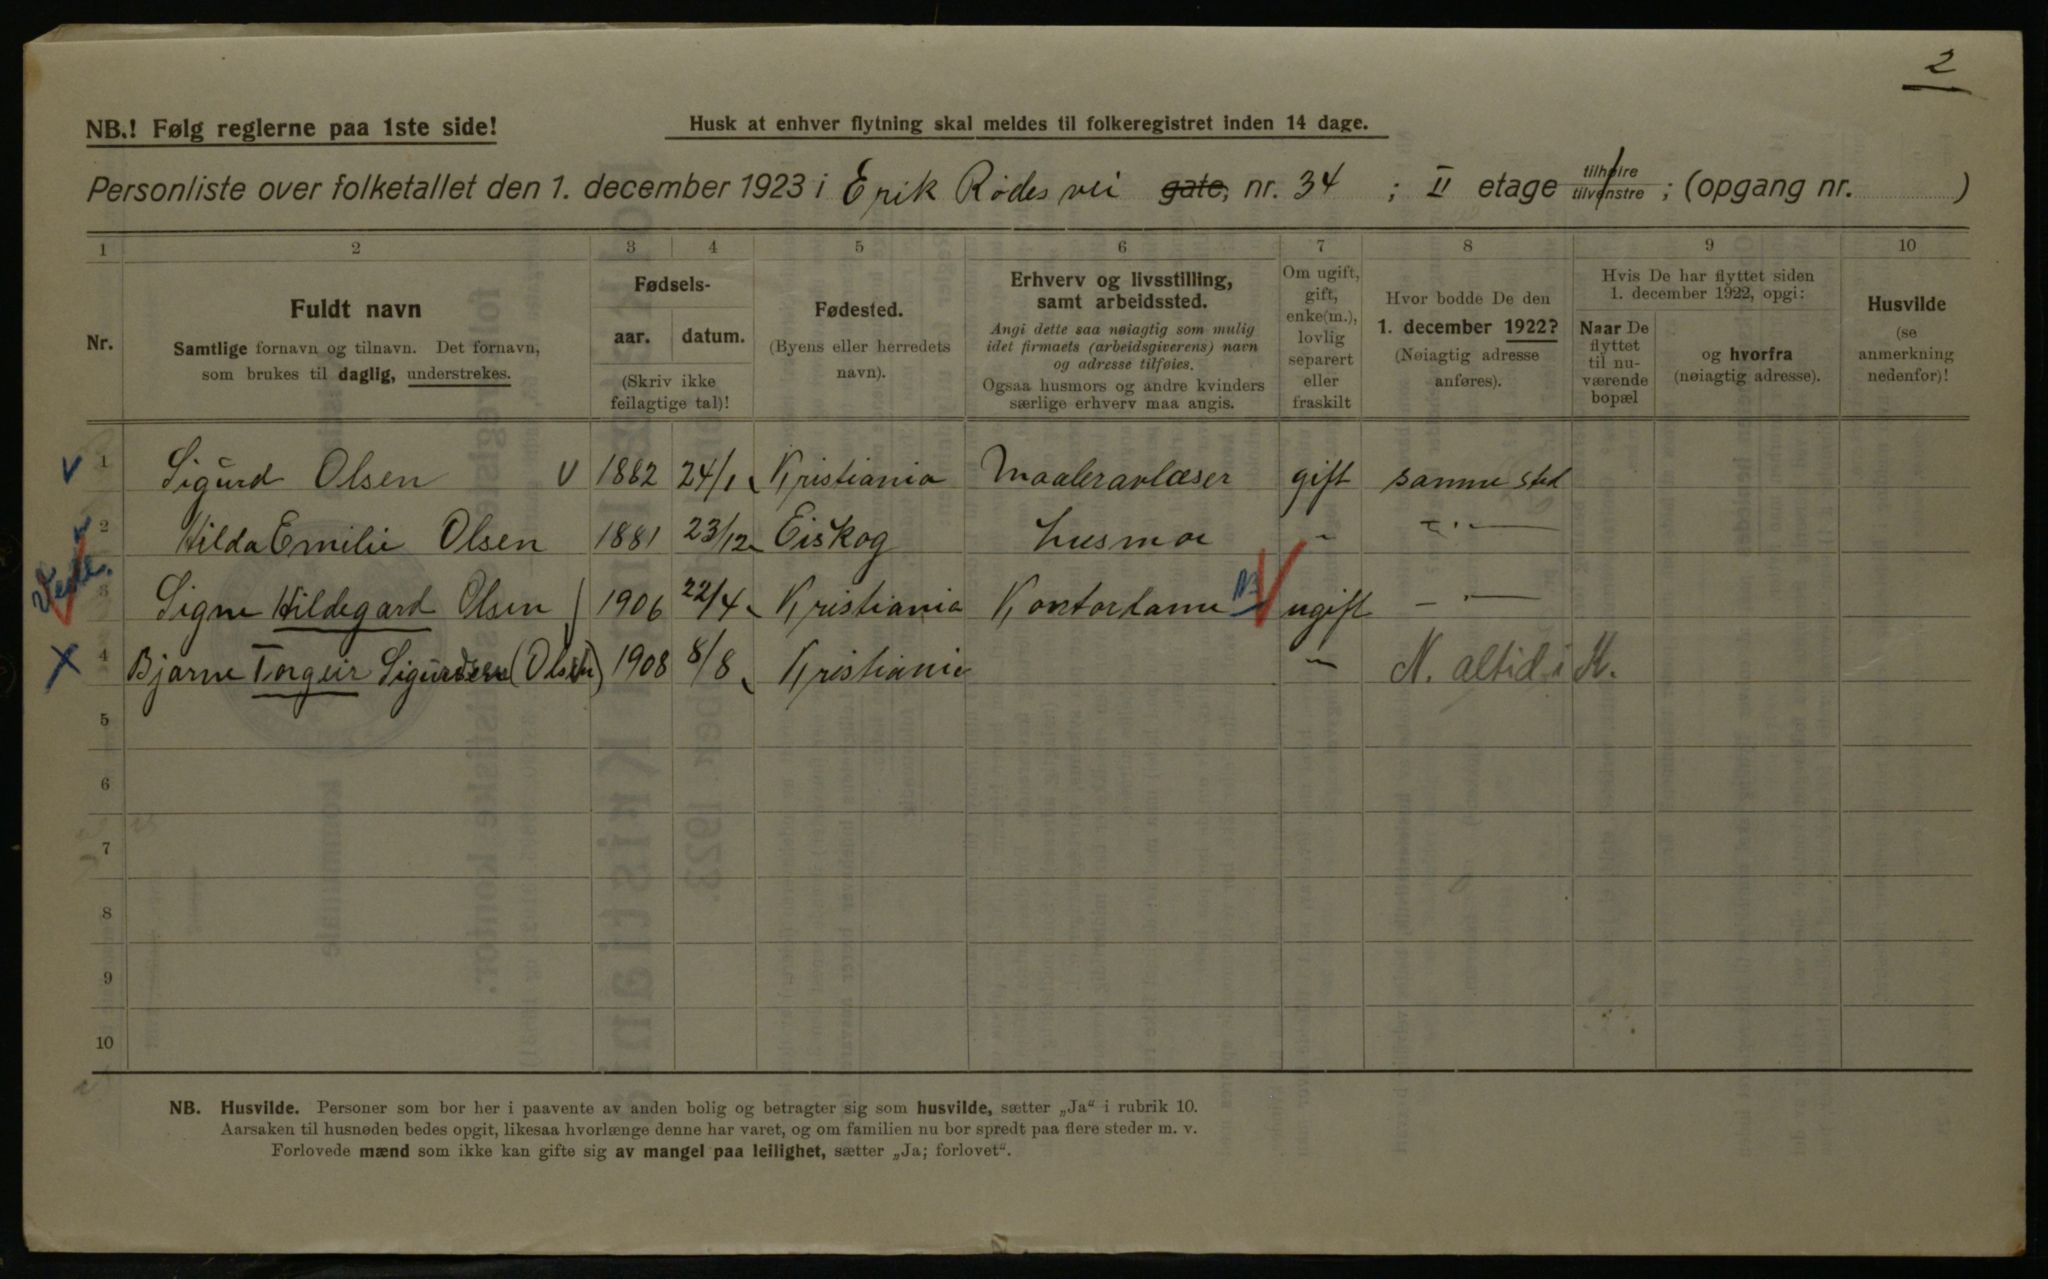 2
NB.! Følg reglerne paa 1ste side!
Husk at enhver flytning skal meldes til folkeregistret inden 14 dage.
Personliste over folketallet den 1. december 1923 i Erik Rødes vei gate, nr. 34 ; II etage tilhøire tilvenstre ; (opgang nr. )
1 2 3 4 5 6 7 8 9 10
Nr.
Fuldt navn
Samtlige fornavn og tilnavn. Det fornavn,
som brukes til daglig, understrekes.
Fødsels-
aar. datum.
(Skriv ikke
feilagtige tal)!
Fødested.
(Byens eller herredets
navn).
Erhverv og livsstilling,
samt arbeidssted.
Angi dette saa nøiagtig som mulig
idet firmaets (arbeidsgiverens) navn
og adresse tilføies.
Ogsaa husmors og andre kvinders
særlige erhverv maa angis.
Om ugift,
gift,
enke(m.),
lovlig
separert
eller
fraskilt
Hvor bodde De den
1. december 1922?
(Nøiagtig adresse
anføres).
Hvis De har flyttet siden
1. december 1922, opgi:
Naar De
flyttet
til nu-
værende
bopæl
og hvorfra
(nøiagtig adresse).
Husvilde
(se
anmerkning
nedenfor)!
1 Sigurd Olsen V 1882 24/1 Kristiania Maaleravlæser gift samme sted
2 Hilda Emilie Olsen 1881 23/12 Eiskog husmor " — " —
3 Signe Hildegard Olsen 1906 22/4 Kristiania Kontordame NB ugift — " —
4 Bjarne Torgeir Sigurdsen (Olsen) 1908 8/8 Kristiania " N. altid i K.
5
6
7
8
9
10
NB. Husvilde. Personer som bor her i paavente av anden bolig og betragter sig som husvilde, sætter „Ja“ i rubrik 10.
Aarsaken til husnøden bedes opgit, likesaa hvorlænge denne har varet, og om familien nu bor spredt paa flere steder m. v.
Forlovede mænd som ikke kan gifte sig av mangel paa leilighet, sætter „Ja; forlovet“.